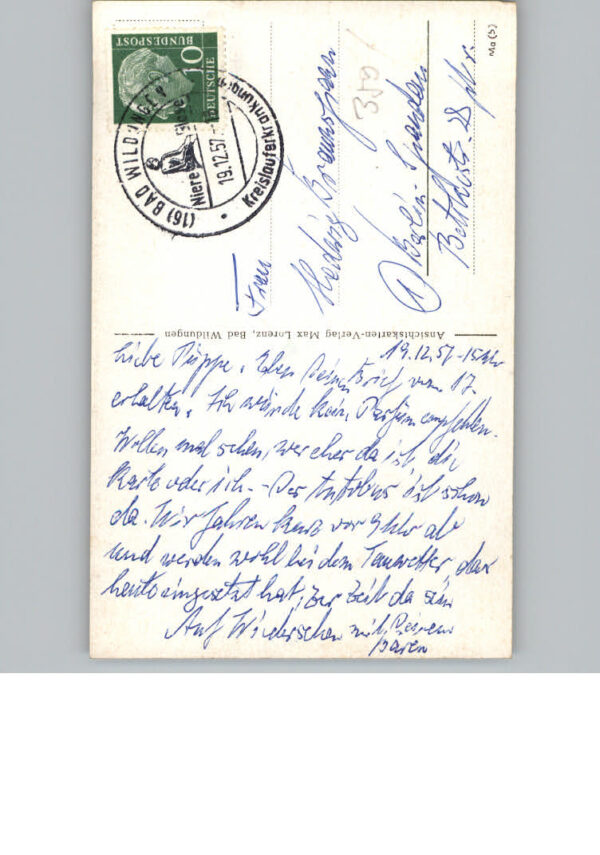 DEUTSCHE
BUNDESPOST
10
(16) BAD WILDUNGEN
Niere
19.12.57
Kreislauferkrankung
Ma (5)
350
Frau
Hedwig
Berlin-Spandau
Ansichtskarten-Verlag Max Lorenz, Bad Wildungen
19.12.57 - 15 Uhr
Liebe Püppe, Eben Deinen Brief vom 17.
erhalten. Ich würde kein Parfüm empfehlen.
Wollen mal sehen, wer eher da ist die
Karte oder ich. - Der Autobus ist schon
da. Wir fahren kurz vor 9 Uhr ab
und werden wohl bei dem Tauwetter, das
heute eingesetzt hat, zur Zeit da sein
Auf Wiedersehen mit